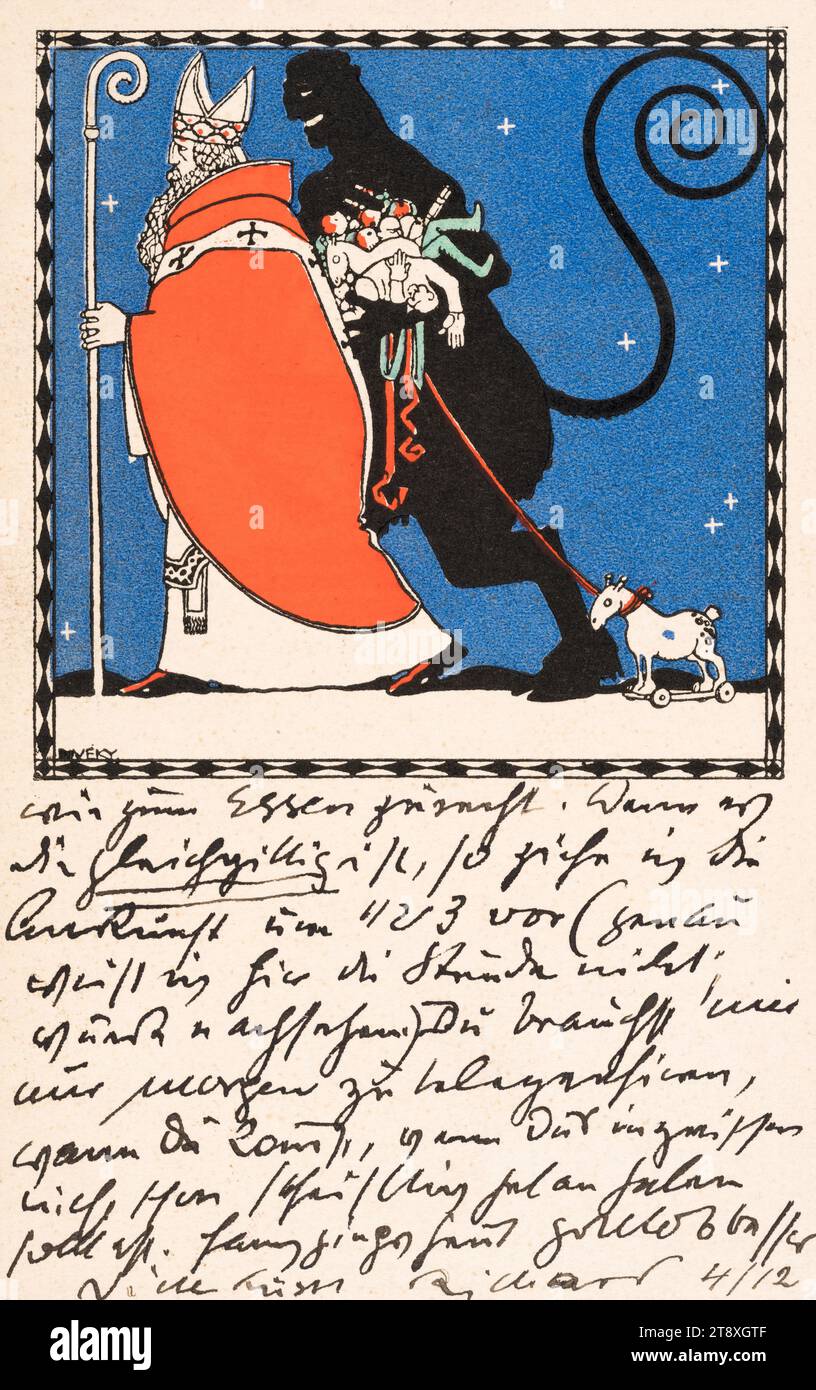 DIVÉKY.
wir zum Essen zurecht. Wenn es
dir gleichgiltig ist, so ziehe ich die
Ankunft um 1/2 3 vor (genau
weiß ich hier die Stunde nicht,
würde nachsehen) Du brauchst mir
nur morgen zu telegrafieren,
wann Du kommst, wenn Du inzwischen
nicht, schon
solltest. ging's heut gottlob besser
Viele Küsse Richard 4/12
alamy
Image ID: 2T8XGTF
www.alamy.com